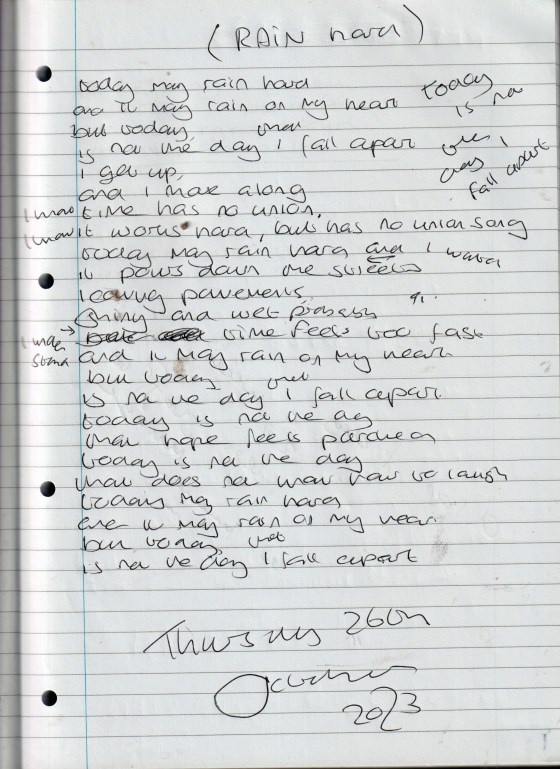 (RAIN hard)
today may rain hard
and it may rain on my heart
but today,
is not the day I fall apart
I get up,
and I move along
time has no union,
it works hard, but has no union song
today may rain hard and I watch
it pours down the streets
leaving pavements
shiny and wet
time feels too fast
and it may rain on my heart
but today
is not the day I fall apart
today is not the day
that hope feels parched
today is not the day
that does not know how to laugh
today may rain hard
and it may rain on my heart
but today, that
is not the day I fall apart
today
is not
the
day I
fall apart
I know
I know
Thursday 26th
October
2023